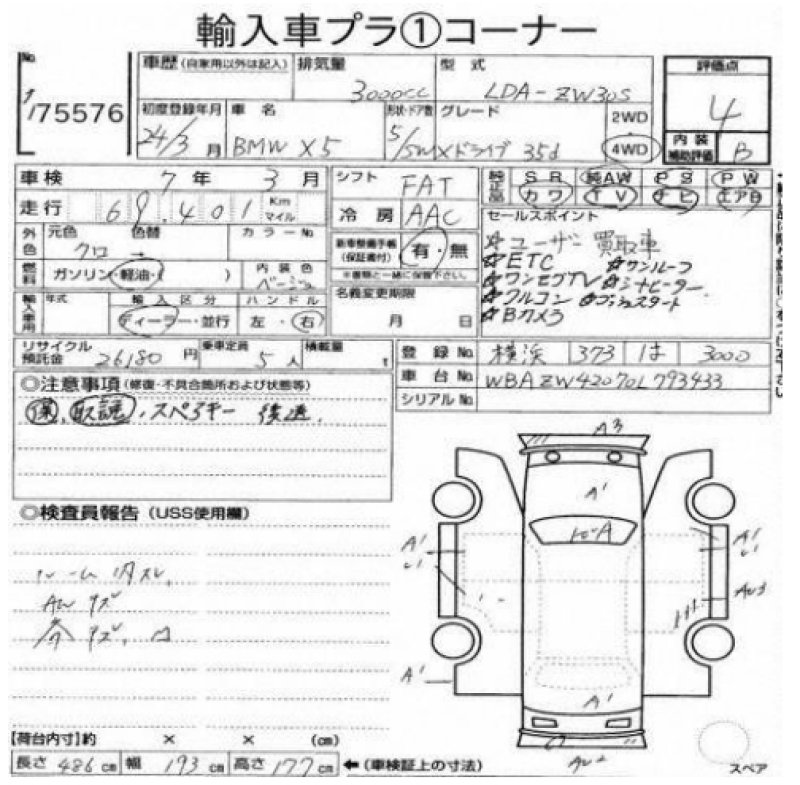 輸入車プラ①コーナー
No.
75576
車歴 (自家用以外は記入) 排気量 3000cc 型式 LDA-ZW30S
評価点 4
初度登録年月 24/3月 車名 BMW X5 形状・ドア数 5/SW グレード Xドライブ 35d 2WD 4WD
内装補助評価 B
車検 7年 3月 シフト FAT
純正品 SR 純AW PS PW
カワ TV ナビ エアB
走行 69,401 Km マイル 冷房 AAC
セールスポイント
外色 元色 クロ 色替 カラーNo.
新車整備手帳 (保証書付) 有・無
※書類と一緒に保管下さい。
☆ユーザー買取車
☆ETC ☆サンルーフ
☆ワンセグTV ☆シートヒーター
☆クルコン ☆プッシュスタート
☆Bカメラ
燃料 ガソリン・軽油・( ) 内装色 ベージュ
輸入車用 年式 輸入区分 ディーラー・並行 ハンドル 左・右
名義変更期限 月 日
リサイクル預託金 26180円 乗車定員 5人 積載量 t
登録No. 横浜 373 は 3000
車台No. WBAZW42070L793433
シリアルNo.
◎注意事項 (修復・不具合箇所および状態等)
保、取説、スペアキー 後送.
◎検査員報告 (USS使用欄)
ルーム内スレ、
AWキズ
A3
A'
トビA
A'
A'
A'
A'
【荷台内寸】約 × × (cm)
長さ 486cm 幅 193cm 高さ 177cm ←(車検証上の寸法)
スペア